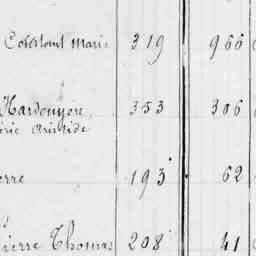 Marie 319 966
Hardouyore 353 306
éric Aristide
erre 193 62
Pierre Thomas 208 41